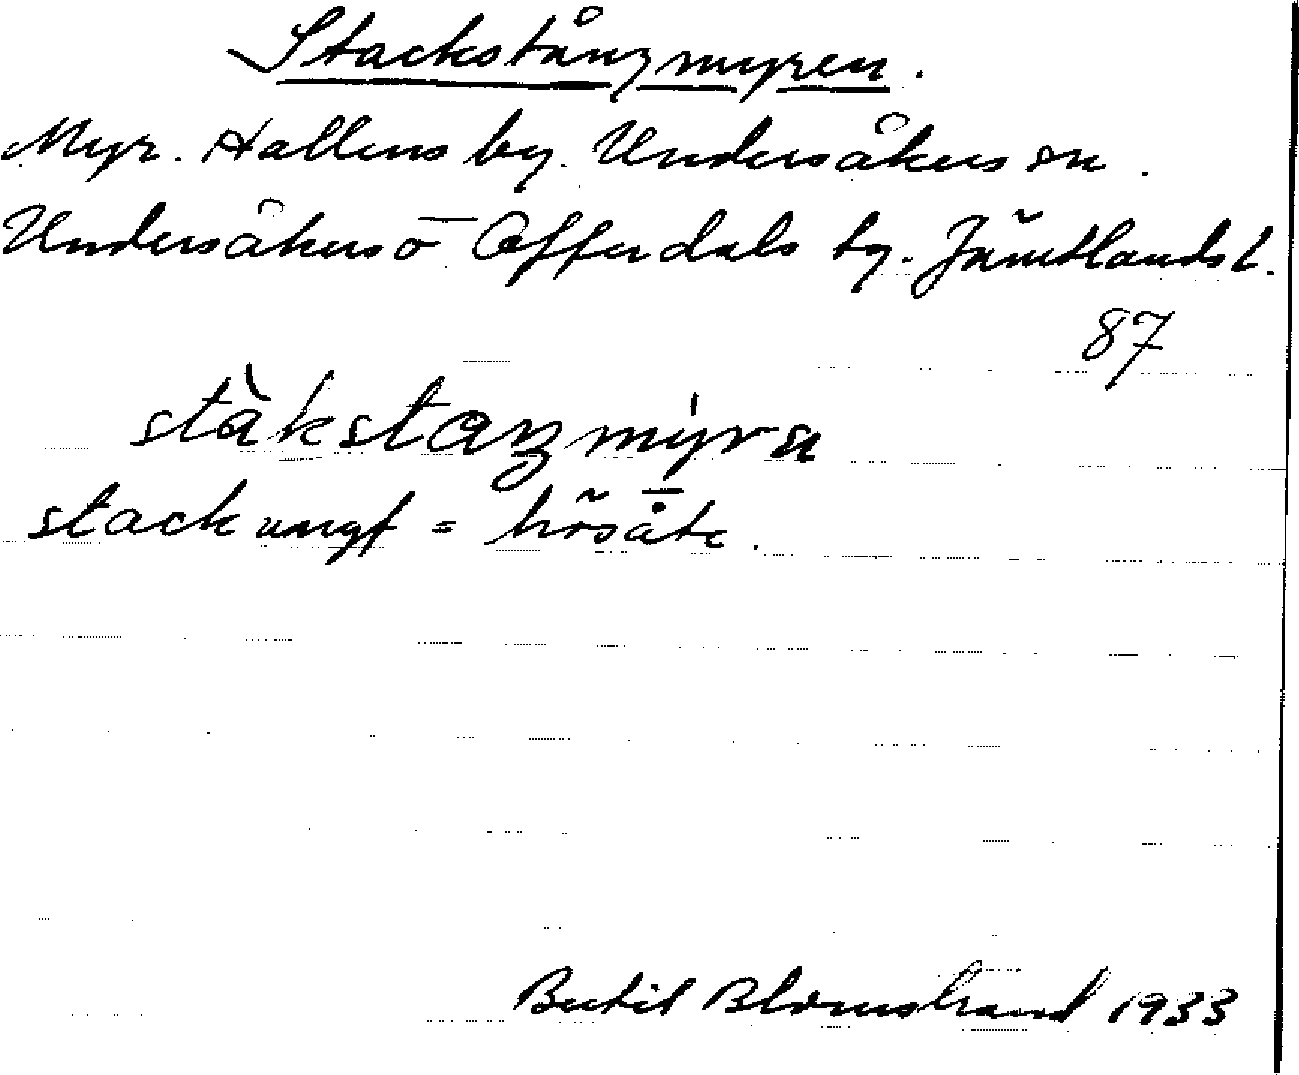 Stackstångmyren.
Myr. Hallens by. Undersåkers sn.
Undersåkers o Offerdals tg. Jämtlands l.
87
stàkstaŋmýra
stack ungf = hösåte.
Bertil Blomstrand 1933